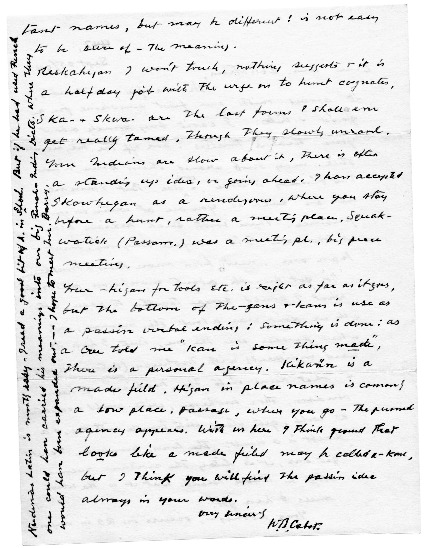 names, but may be different! is not easy
to be sure of - the meaning.
Skeskahegan I won't touch, nothing suggests & it is
a half day job with the urge on to hunt cognates,
Ska- & Skwa- are the last forms I shall ever
get really tamed, though they slowly unravel.
Your Indians are slow about it, there is often
a standing up idea, or going ahead. I have accepted
Skowhegan as a rendezvous, where you stay
before a hunt, rather a meeting place, Squak-
(Passam.) was a meeting pl., big peace
meeting.
Your -higan for tools etc. is right as far as it goes,
but the bottom of the -gans & -kans is use as
a passive verbal ending; something is done: as
a Cree told me "kan is some thing made,
there is a personal agency. Kikwän is a
made field, Higan in place names is coming
a bow place, passage, where you go - the personal
agency appears. With us here I think ground that
looks like a made field may be called a -kan,
but I think you will find the passive idea
always in your words.
Very sincerely
W.B. Cabot.
Latin is mostly easy - I read a good bit of it in School. But if he had used French
one could have carried his meanings into our big French-Indn Dicts. where they
would have been expanded out. -- I hope to meet Mr. Barry.